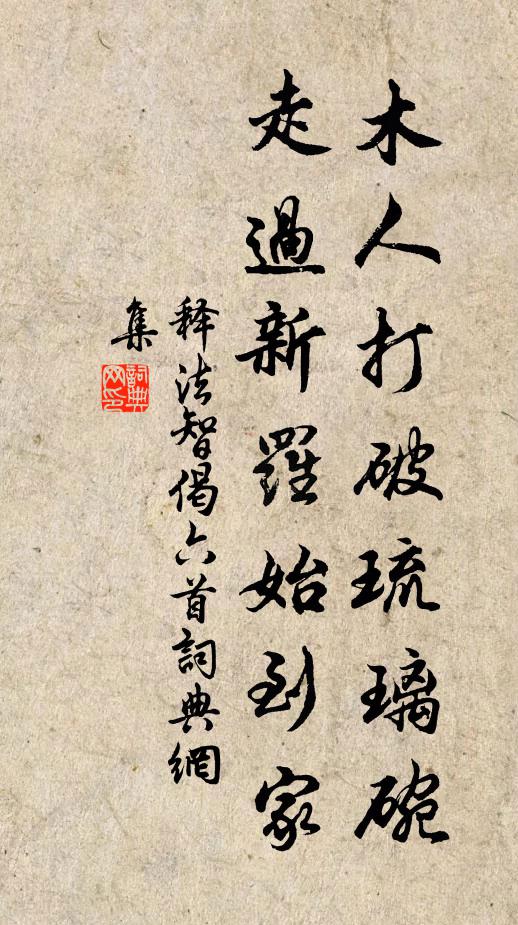 木人打破琉璃碗
走過新羅始到家
釋法智偈六首詞典網
集
詞典
网印